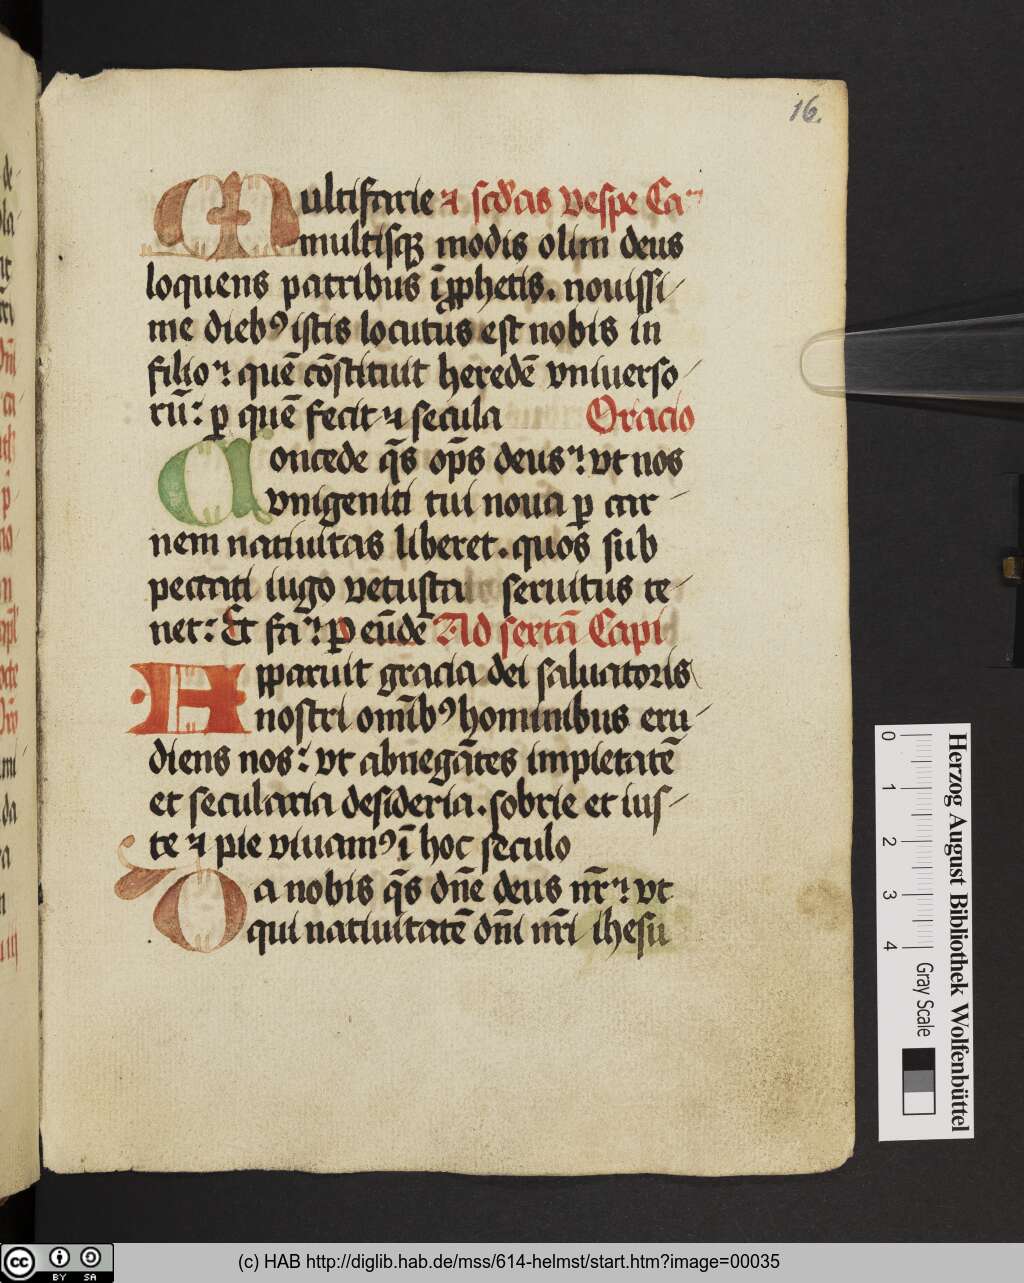 16.
Multifarie ⁊ scd'as vespe Ca
multisqꝫ modis olim deus
loquens patribus ī ꝓphetis. nouissi
me diebꝰ istis locutus est nobis in
filio: quē cōstituit heredē vniuerso
rū: ꝑ quē fecit ⁊ secula Oracio
Concede q̄s op̄s deus: vt nos
vnigeniti tui noua ꝑ car
nem natiuitas liberet. quos sub
peccati iugo vetusta seruitus te
net: Et fa: ꝑ eūdē Ad sextā Capi
Apparuit gracia dei saluatoris
nostri om̄ibꝰ hominibus eru
diens nos: vt abnegātes impietatē
et secularia desideria. sobrie et ius
te ⁊ pie viuamꝰ ī hoc seculo
Da nobis q̄s dn̄e deus nr̄: vt
qui natiuitatē dn̄i nr̄i ihesu
Herzog August Bibliothek Wolfenbüttel
0 1 2 3 4 Gray Scale
cc BY SA
(c) HAB http://diglib.hab.de/mss/614-helmst/start.htm?image=00035